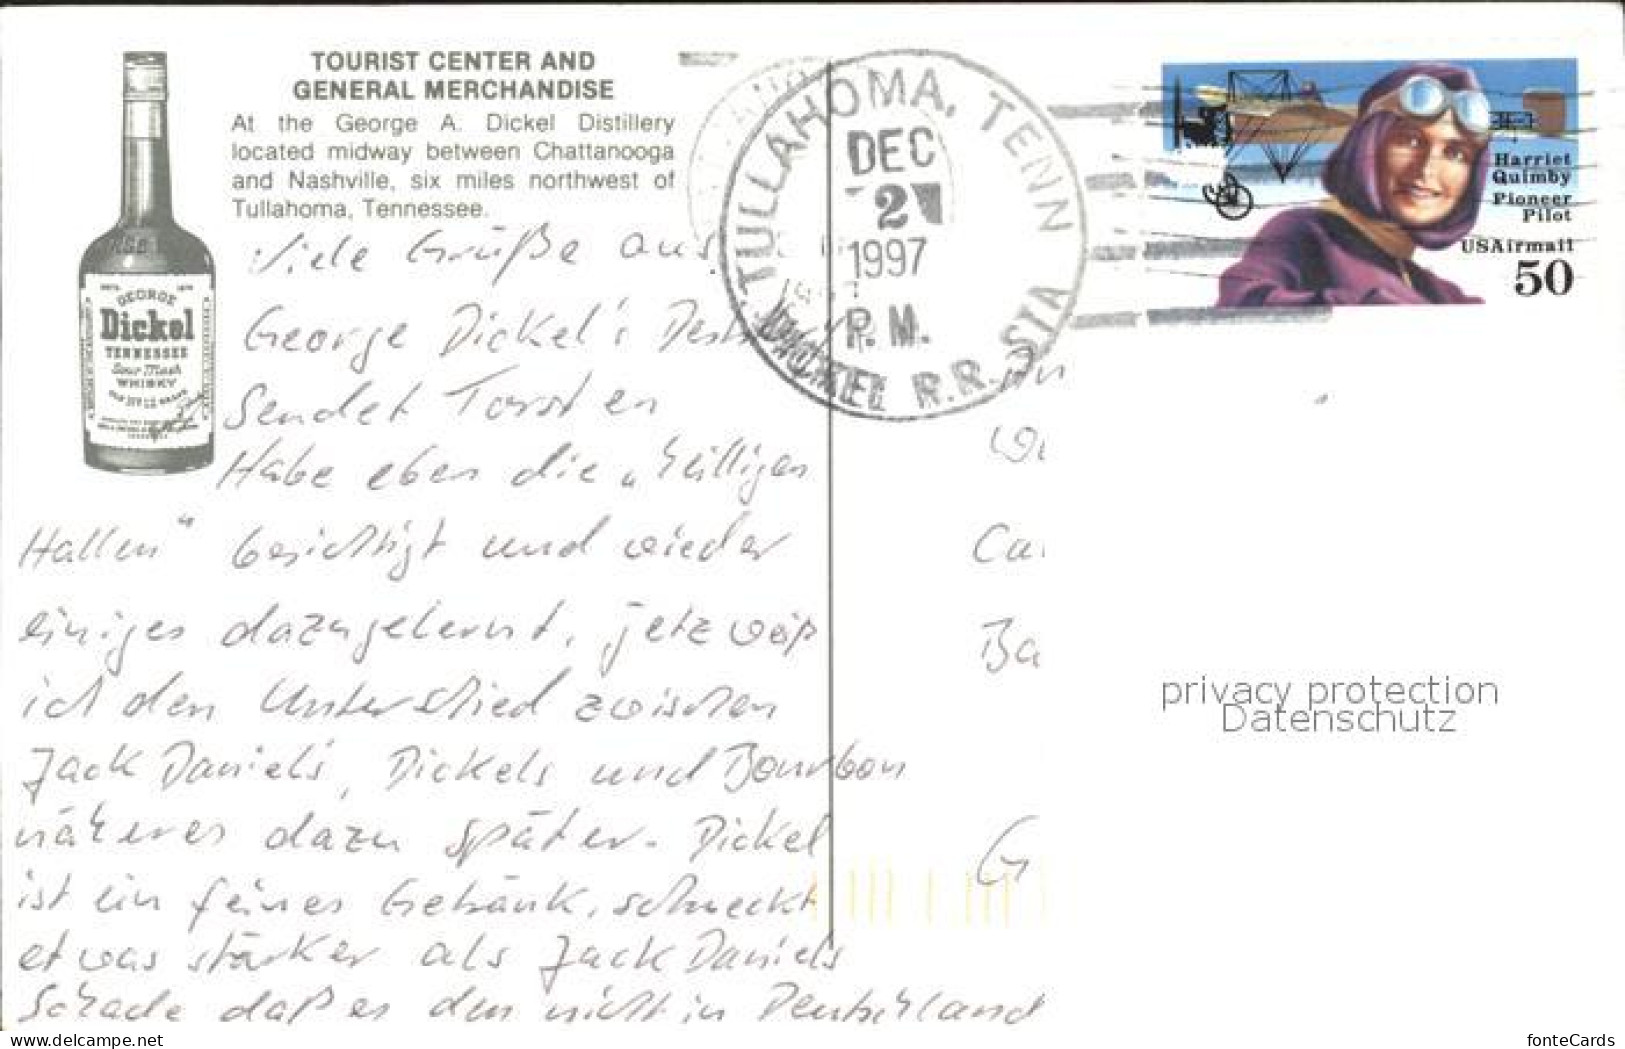 TOURIST CENTER AND
GENERAL MERCHANDISE
At the George A. Dickel Distillery
located midway between Chattanooga
and Nashville, six miles northwest of
Tullahoma, Tennessee.
GEORGE
Dickel
TENNESSEE
Sour Mash
WHISKY
TULLAHOMA, TENN
DEC
2
1997
P.M.
DICKEL R.R. STA
Harriet
Quimby
Pioneer
Pilot
USAirmail
50
Viele Grüße aus
George Dickel's
Sendet Torsten
Habe eben die „heiligen
Hallen" besichtigt und wieder
einiges dazugelernt, jetz weiß
ich den Unterschied zwischen
Jack Daniels, Dickels und Bourbon
näheres dazu später. Dickel
ist ein feines Getränk, schmeckt
etwas stärker als Jack Daniels
Schade daß es den nicht in Deutschland
Ca
Ba
G
privacy protection
Datenschutz
www.delcampe.net
fonteCards